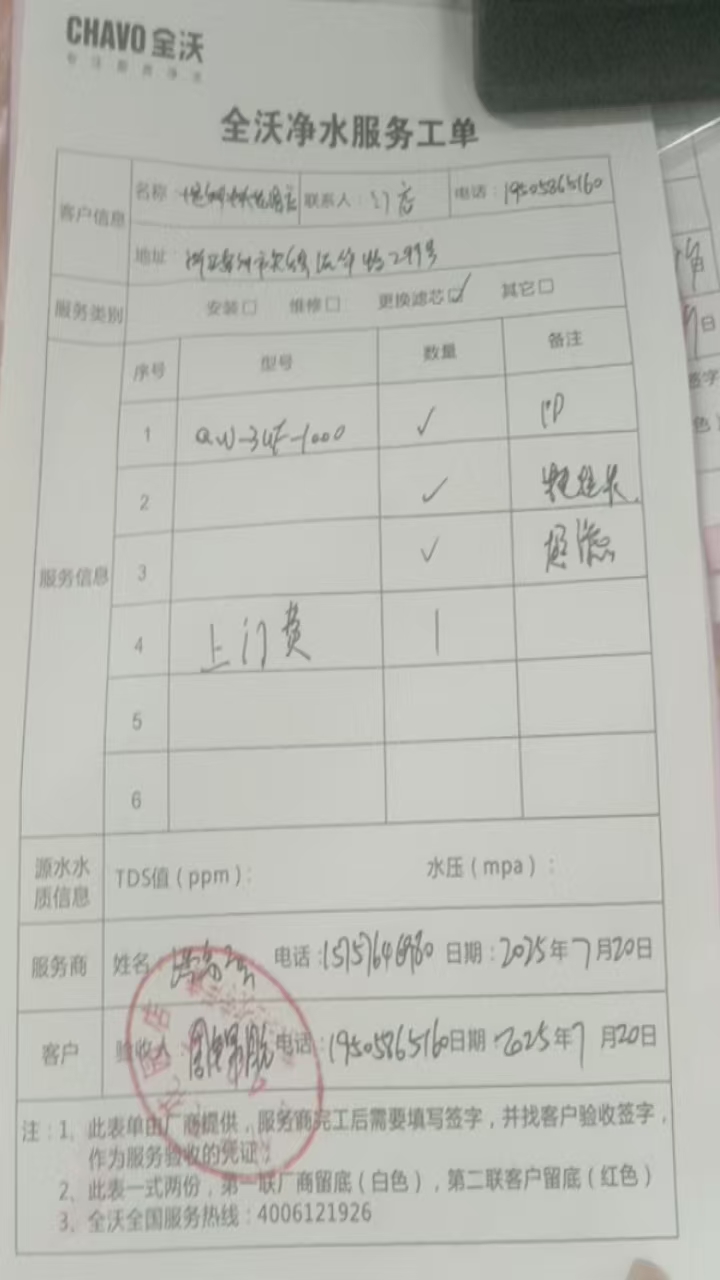 CHAVO 全沃
全沃净水服务工单
客户信息
名称: 联系人: 门店 电话: 19505865160
地址: 299号
服务类别 安装□ 维修□ 更换滤芯☑ 其它□
服务信息
序号 型号 数量 备注
1 QW-3UF-1000 ✓ PP
2 ✓
3 ✓ 超滤
4 上门费 1
5
6
源水水质信息 TDS值(ppm): 水压(mpa):
服务商 姓名: 电话: 15757646980 日期: 2025年7月20日
客户 验收人: 电话: 19505865160 日期: 2025年7月20日
注:1、此表单由厂商提供,服务商完工后需要填写签字,并找客户验收签字,
作为服务验收的凭证;
2、此表一式两份,第一联厂商留底(白色),第二联客户留底(红色)
3、全沃全国服务热线:4006121926